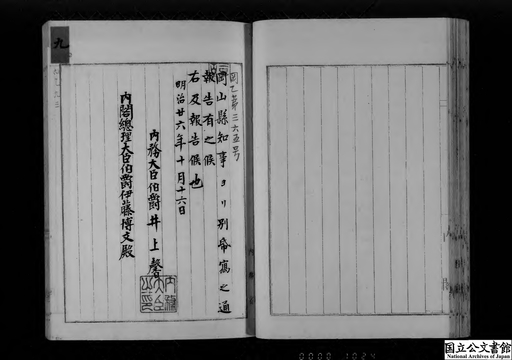 岡乙第三六五号
岡山縣知事ヨリ別帋寫之通
報告有之候
右及報告候也
明治廿六年十月十六日
内務大臣伯爵井上馨
内閣總理大臣伯爵伊藤博文殿
九
国立公文書館
National Archives of Japan
0000 1024